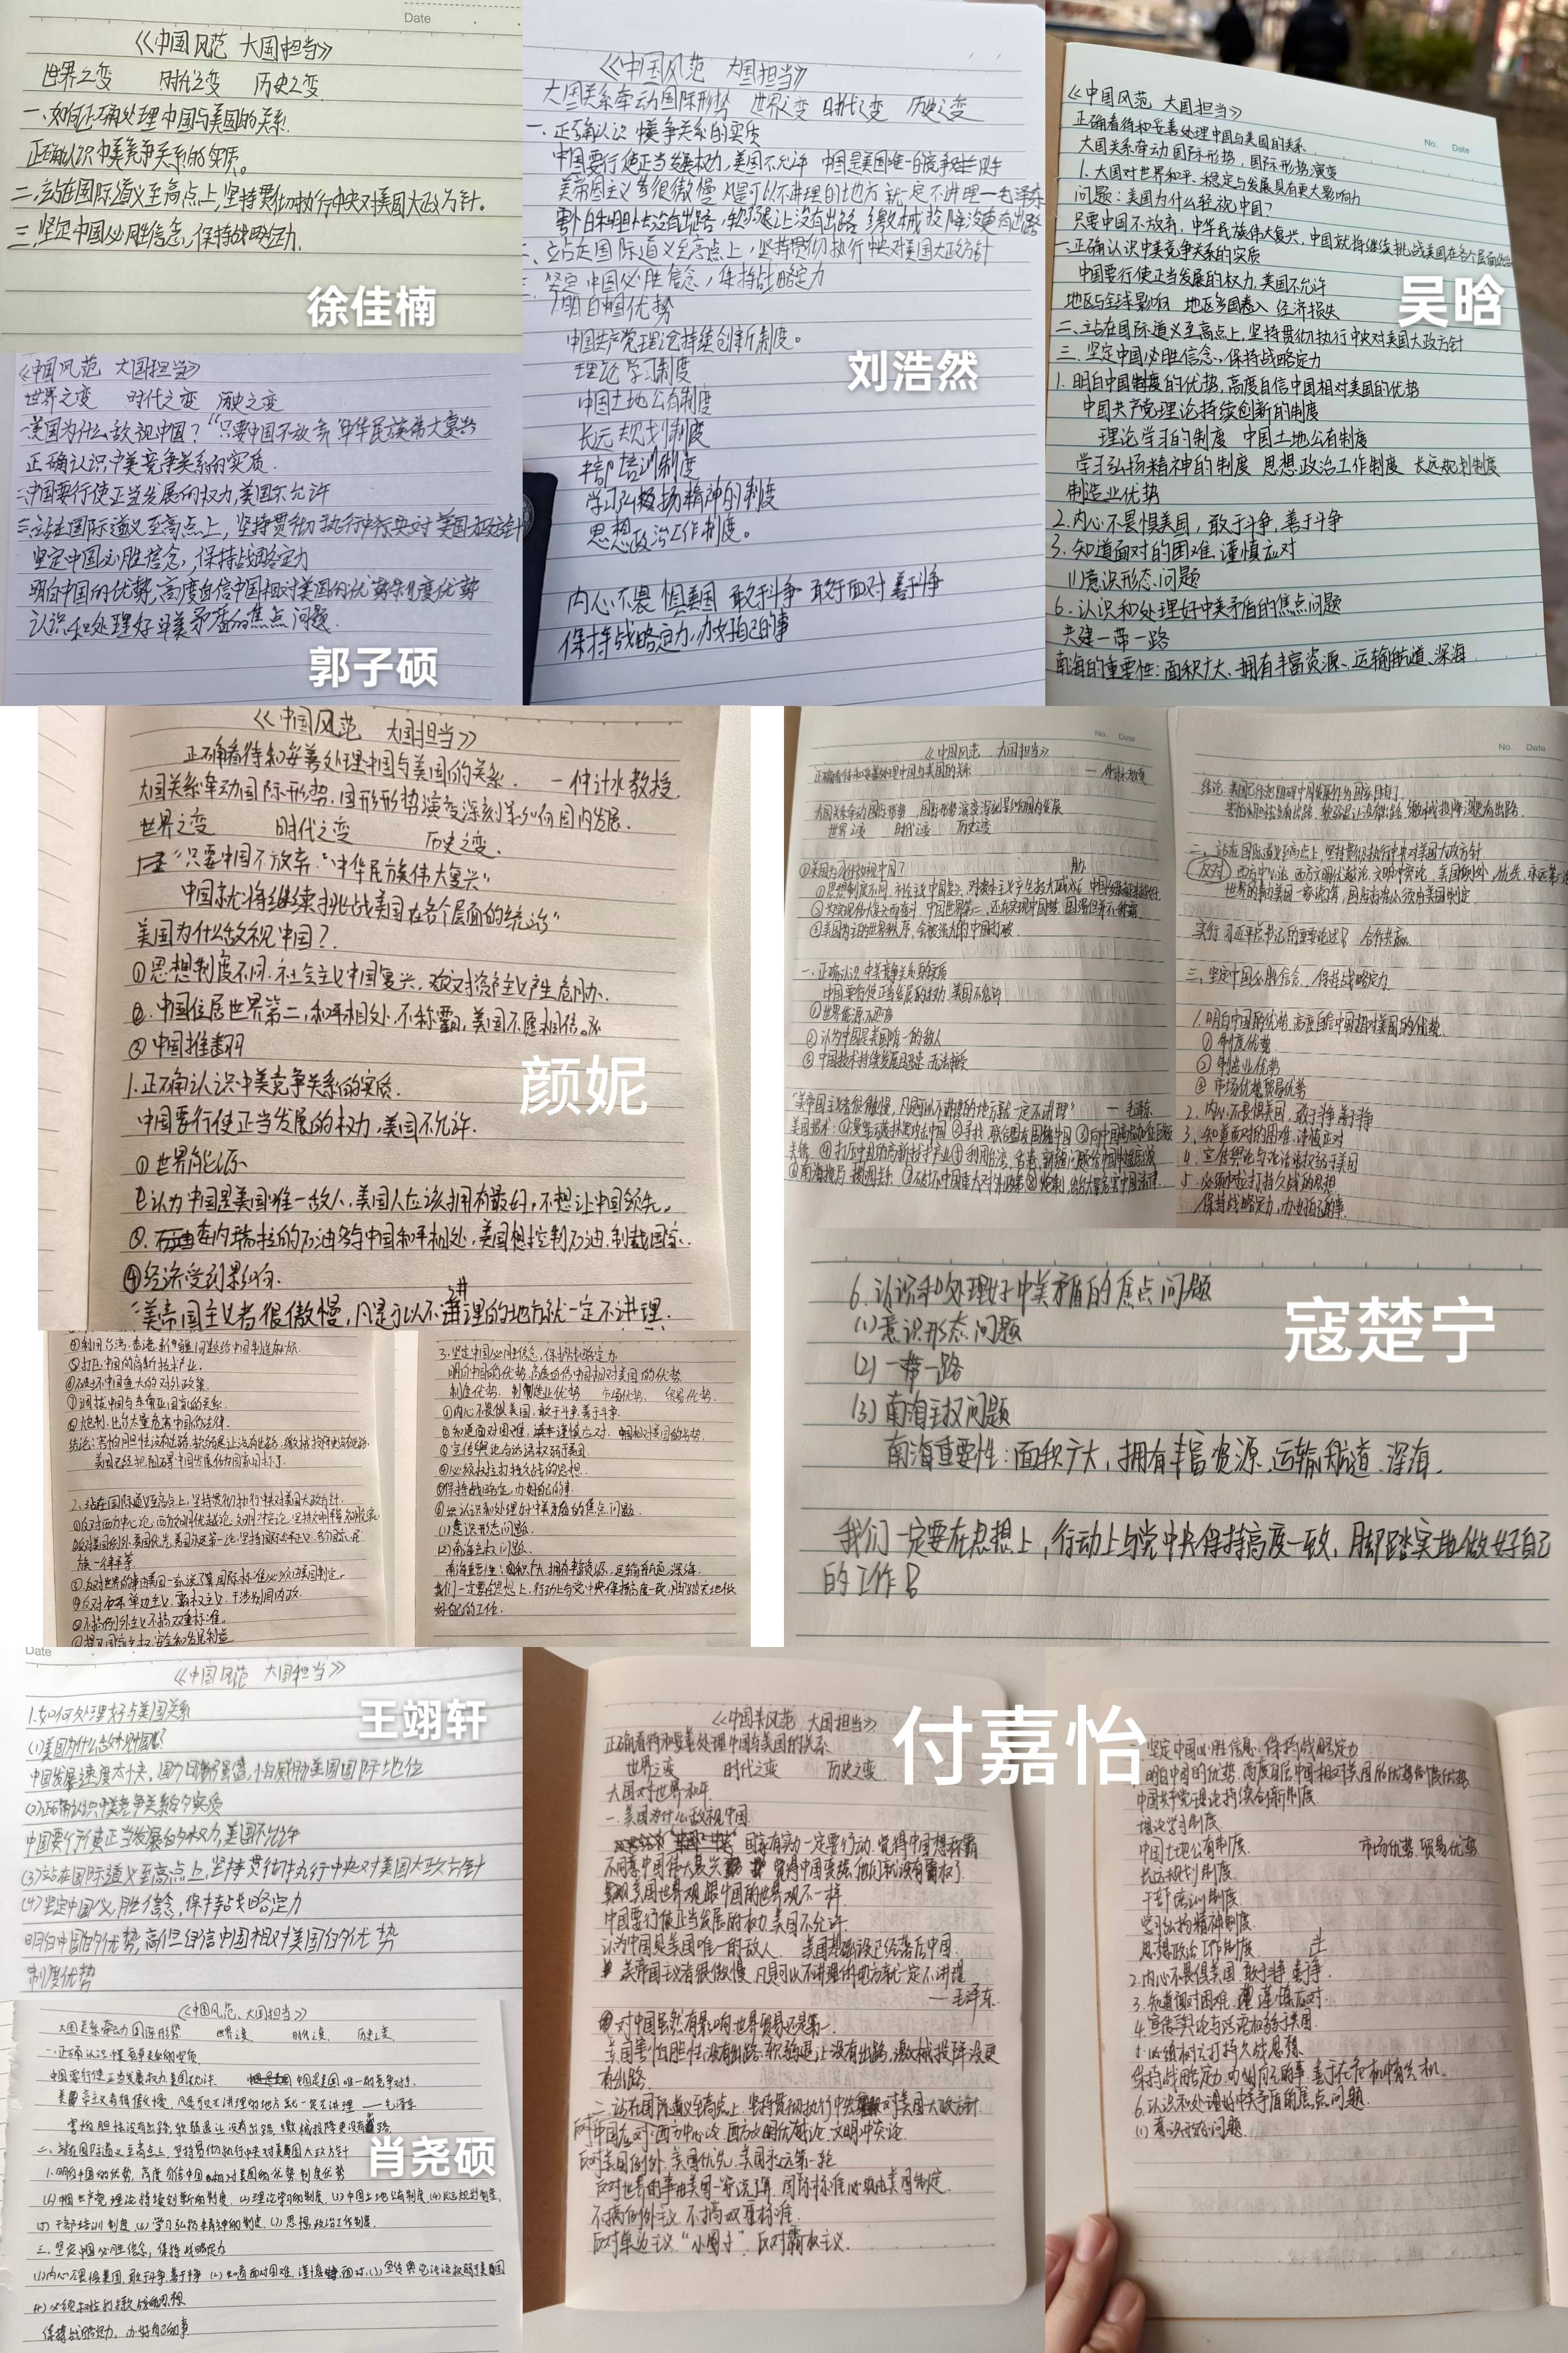 Date
《中国风范 大国担当》
世界之变 时代之变 历史之变
一、如何正确处理中国与美国的关系!
正确认识中美竞争关系的实质。
二、站在国际道义至高点上,坚持贯彻执行中央对美国大政方针。
三、坚定中国必胜信念,保持战略定力.
徐佳楠
《中国风范 大国担当》
世界之变 时代之变 历史之变
一美国为什么敌视中国?“只要中国不放弃“中华民族伟大复兴
正确认识中美竞争关系的实质.
二中国要行使正当发展的权力,美国不允许
三.站在国际道义至高点上,坚持贯彻执行中央对美国大政方针
坚定中国必胜信念,保持战略定力
明白中国的优势,高度自信中国相对美国的优势制度优势
认识和处理好中美矛盾的焦点问题.
郭子硕
《中国风范 大国担当》
大国关系牵动国际形势 世界之变 时代之变 历史之变
一、正确认识中美竞争关系的实质
中国要行使正当发展权力,美国不允许 中国是美国唯一的竞争对手
美帝国主义者很傲慢 凡是可以不讲理的地方就一定不讲理—毛泽东
害怕胆怯没有出路,软弱退让没有出路 缴械投降没更有出路
二、立站在国际道义至高点上,坚持贯彻执行中央对美国大政方针
三、坚定中国必胜信念,保持战略定力
1明白中国优势
中国共产党理论持续创新制度。
理论学习制度
中国土地公有制度
长远规划制度
干部培训制度
学习弘扬精神的制度
思想政治工作制度。
内心不畏惧美国 敢于斗争 敢于面对 善于斗争
保持战略定力,办好自己的事
刘浩然
No. Date
《中国风范 大国担当》
正确看待和妥善处理中国与美国的关系
大国关系牵动国际形势,国际形势演变
1.大国对世界和平、稳定与发展具有重大影响力
问题:美国为什么轻视中国?
只要中国不放弃,中华民族伟大复兴,中国就将继续挑战美国在各个层面的统治
一.正确认识中美竞争关系的实质
中国要行使正当发展的权力,美国不允许
地区与全球影响 地区多国卷入 经济损失
二、站在国际道义至高点上,坚持贯彻执行中央对美国大政方针
三.坚定中国必胜信念,保持战略定力
1.明白中国制度的优势,高度自信中国相对美国的优势
中国共产党理论持续创新的制度
理论学习的制度 中国土地公有制度
学习弘扬精神的制度 思想政治工作制度 长远规划制度
制造业优势
2.内心不畏惧美国,敢于斗争,善于斗争
3.知道面对的困难,谨慎应对
(1)意识形态问题
6.认识和处理好中美矛盾的焦点问题
共建一带一路
南海的重要性:面积广大、拥有丰富资源、运输航道、深海
吴晗
《中国风范 大国担当》
正确看待和妥善处理中国与美国的关系. —仲计水教授.
大国关系牵动国际形势,国际形势演变深刻影响国内发展.
世界之变 时代之变 历史之变.
“只要中国不放弃“中华民族伟大复兴”
中国就将继续挑战美国在各个层面的统治”
美国为什么敌视中国?
①思想制度不同.社会主义中国复兴,对资产主义产生威胁.
②.中国位居世界第二,和平相处.不称霸,美国不愿相信.
③中国推翻
1.正确认识中美竞争关系的实质.
中国要行使正当发展的权力,美国不允许.
①世界能源
②认为中国是美国唯一敌人,美国人应该拥有最好,不想让中国领先.
③.委内瑞拉的石油多与中国和平相处,美国想控制石油,制裁国家.
④经济受到影响.
“美帝国主义者很傲慢,凡是可以不讲理的地方就一定不讲理.
颜妮
④利用台湾、香港、新疆问题给中国制造麻烦.
⑤打压中国的高新技术产业.
⑥破坏中国重大的对外政策.
⑦调拨中国与东南亚国家的关系.
⑧炮制,出台大量危害中国的法律.
结论:害怕胆怯没有出路,软弱退让没有出路,缴械投降更没有出路.
美国已经把阻碍中国发展作为国家目标了.
2.站在国际道义至高点上,坚持贯彻执行中央对美国大政方针.
①反对西方中心论,西方文明优越论,文明冲突论,坚持文明平等
②反对美国例外,美国优先,美国永远第一论,坚持国际公平正义,各个国家、民
族一律平等.
③反对世界的事由美国一家说了算,国际标准必须由美国制定.
④反对单边主义,霸权主义,干涉别国内政.
⑤不搞例外主义不搞双重标准.
3.坚定中国必胜信念,保持战略定力.
明白中国的优势,高度自信中国相对美国的优势.
制度优势. 制造业优势 市场优势. 贸易优势.
①内心不畏惧美国,敢于斗争,善于斗争.
②知道面对困难,谨慎应对.
③宣传舆论与话语权弱于美国.
④必须树立打持久战的思想.
⑤保持战略定力,办好自己的事.
⑥认识和处理好中美矛盾的焦点问题.
(1)意识形态问题.
(2)南海主权问题.
南海重要性:面积广大,拥有丰富资源,运输航道,深海.
我们一定要在思想上,行动上与党中央保持高度一致,脚踏实地做
好自己的工作.
No. Date
《中国风范 大国担当》
正确看待和妥善处理中国与美国的关系 —仲计水教授
大国关系牵动国际形势,国际形势演变深刻影响国内发展
世界之变 时代之变 历史之变
①美国为什么敌视中国?
一.正确认识中美竞争关系的实质
中国要行使正当发展的权力,美国不允许
①世界能源
②认为中国是美国唯一的敌人
③中国技术持续发展
“美帝国主义者很傲慢,凡是可以不讲理的地方就一定不讲理” —毛泽东
No. Date
结论:美国已经把阻碍中国发展作为国家目标了.
害怕胆怯没有出路,软弱退让没有出路,缴械投降更没有出路.
二、站在国际道义至高点上,坚持贯彻执行中央对美国大政方针
反对 西方中心论,西方文明优越论,文明冲突论,美国例外,优先,永远第一
世界的事由美国一家说了算,国际标准必须由美国制定.
实行习近平总书记的重要论述! 合作共赢.
三.坚定中国必胜信念,保持战略定力
1.明白中国的优势,高度自信中国相对美国的优势.
①制度优势
②制造业优势
③市场优势贸易优势
2.内心不畏惧美国,敢于斗争善于斗争
3.知道面对的困难,谨慎应对
4.宣传舆论与话语权弱于美国
5.必须树立打持久战的思想
保持战略定力,办好自己的事.
6.认识和处理好中美矛盾的焦点问题
(1)意识形态问题
(2)一带一路
(3)南海主权问题
南海重要性:面积广大,拥有丰富资源、运输航道、深海.
我们一定要在思想上,行动上与党中央保持高度一致,脚踏实地做好自己
的工作
寇楚宁
Date
《中国风范 大国担当》
1.如何处理好与美国关系
(1)美国为什么敌对中国?
中国发展速度太快,国力日渐强盛,怕威胁美国国际地位
(2)正确认识中美竞争关系的实质
中国要行使正当发展的权力,美国不允许
(3)站在国际道义至高点上,坚持贯彻执行中央对美国大政方针
(4)坚定中国必胜信念,保持战略定力
明白中国的优势,高但自信中国相对美国的优势
制度优势
王翊轩
《中国风范、大国担当》
大国关系牵动国际形势 世界之变 时代之变, 历史之变,
一.正确认识中美竞争关系的实质
中国要行使正当发展权力,美国不允许. 中国是美国唯一的竞争对手.
美帝主义者很傲慢 凡是可以不讲理的地方就一定不讲理 —毛泽东
害怕胆怯没有出路 软弱退让没有出路 缴械投降更没有出路
二、站在国际道义至高点上,坚持贯彻执行中央对美国大政方针
1.明白中国的优势,高度自信中国相对美国的优势,制度优势
(1)中国共产党理论持续创新的制度,(2)理论学习的制度,(3)中国土地公有制度,(4)长远规划制度,
(5)干部培训制度,(6)学习弘扬精神的制度,(7)思想政治工作制度,
三.坚定中国必胜信念,保持战略定力
(1)内心不畏惧美国,敢于斗争,善于斗争 (2)知道面对困难,谨慎面对,(3)宣传舆论话语权弱于美国
(4)必须树立打持久战的思想
保持战略定力,办好自己的事
肖尧硕
《中国风范 大国担当》
正确看待和妥善处理中国与美国的关系.
世界之变 时代之变 历史之变
大国对世界和平.
一.美国为什么敌视中国.
国家有实力一定要行动,觉得中国想称霸
不同意中国伟大复兴 觉得中国变强,他们就没有霸权了
美国世界观跟中国的世界观不一样.
中国要行使正当发展的权力,美国不允许.
认为中国是美国唯一的敌人. 美国基础设已经落后中国.
美帝国主义者很傲慢 凡是可以不讲理的地方就一定不讲理
—毛泽东.
对中国虽然有影响世界贸易还是第一.
美国害怕胆怯没有出路.软弱退让没有出路,缴械投降没更
有出路.
二.站在国际道义至高点上,坚持贯彻执行中央对美国大政方针
中国反对:西方中心论,西方文明优越论,文明冲突论.
反对美国例外,美国优先,美国永远第一轮
反对世界的事由美国一家说了算,国际标准必须由美国制定.
不搞例外主义,不搞双重标准.
反对单边主义“小圈子”,反对霸权主义.
坚定中国必胜信息,保持战略定力
明白中国的优势,高度自信中国相对美国的优势制度优势
中国共产党理论持续创新制度.
理论学习制度.
中国土地公有制度. 市场优势.贸易优势
长远规划制度.
干部培训制度.
学习弘扬精神制度.
思想政治工作制度.
2.内心不畏惧美国,敢于斗争,善于斗争.
3.知道面对困难,谨慎应对.
4.宣传舆论与话语权弱于美国.
5.必须树立打持久战思想.
保持战略定力,办好自己的事,善于在危机中育先机.
6.认识和处理好中美矛盾的焦点问题.
(1)意识形态问题.
付嘉怡